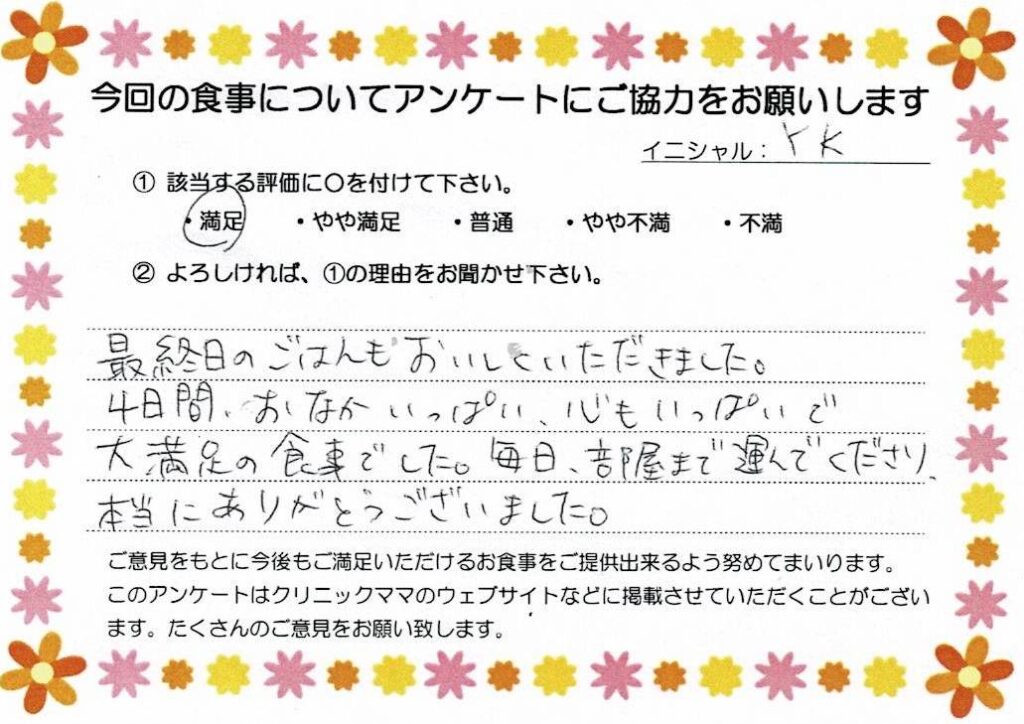 今回の食事についてアンケートにご協力をお願いします
イニシャル： YK
① 該当する評価に○を付けて下さい。
・満足 ・やや満足 ・普通 ・やや不満 ・不満
② よろしければ、①の理由をお聞かせ下さい。
最終日のごはんもおいしくいただきました。
4日間、おなかいっぱい、心もいっぱいで
大満足の食事でした。毎日、部屋まで運んでくださり、
本当にありがとうございました。
ご意見をもとに今後もご満足いただけるお食事をご提供出来るよう努めてまいります。
このアンケートはクリニックママのウェブサイトなどに掲載させていただくことがござい
ます。たくさんのご意見をお願い致します。